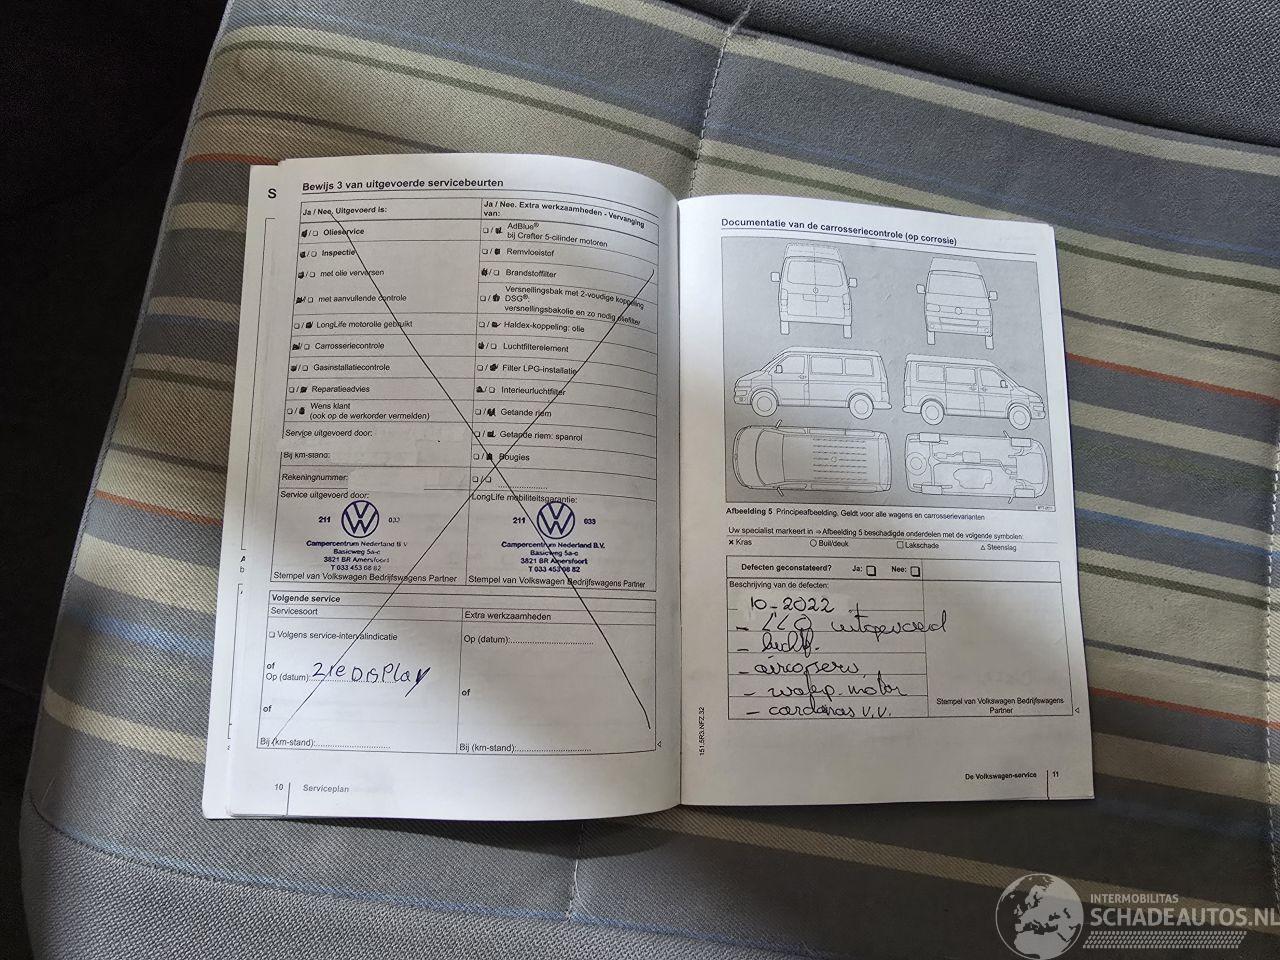 S
Bewijs 3 van uitgevoerde servicebeurten
Ja / Nee. Uitgevoerd is:
Olieservice
Inspectie
met olie verversen
met aanvullende controle
LongLife motorolie gebruikt
Carrosseriecontrole
Gasinstallatiecontrole
Reparatieadvies
Wens klant
(ook op de werkorder vermelden)
Service uitgevoerd door:
Bij km-stand:
Rekeningnummer:
Service uitgevoerd door:
211 033
Campercentrum Nederland B.V.
Basicweg 5a-c
3821 BR Amersfoort
T 033 453 08 82
Stempel van Volkswagen Bedrijfswagens Partner
Ja / Nee. Extra werkzaamheden - Vervanging
van:
AdBlue®
bij Crafter 5-cilinder motoren
Remvloeistof
Brandstoffilter
Versnellingsbak met 2-voudige koppeling
DSG®:
versnellingsbakolie en zo nodig oliefilter
Haldex-koppeling: olie
Luchtfilterelement
Filter LPG-installatie
Interieurluchtfilter
Getande riem
Getande riem: spanrol
Bougies
LongLife mobiliteitsgarantie:
211 033
Campercentrum Nederland B.V.
Basicweg 5a-c
3821 BR Amersfoort
T 033 453 08 82
Stempel van Volkswagen Bedrijfswagens Partner
Volgende service
Servicesoort
Volgens service-intervalindicatie
of
Op (datum): zie Display
of
Bij (km-stand):
Extra werkzaamheden
Op (datum):
of
Bij (km-stand):
10 Serviceplan
Documentatie van de carrosseriecontrole (op corrosie)
Afbeelding 5 Principeafbeelding. Geldt voor alle wagens en carrosserievarianten
Uw specialist markeert in ⇒ Afbeelding 5 beschadigde onderdelen met de volgende symbolen:
× Kras ○ Buil/deuk □ Lakschade △ Steenslag
Defecten geconstateerd? Ja: □ Nee: □
Beschrijving van de defecten:
10-2022
- LLO uitgevoerd
-
- aircoserv.
- wafp. motor
- cardanas v.v.
Stempel van Volkswagen Bedrijfswagens
Partner
151.5R3.NFZ.32
De Volkswagen-service 11
INTERMOBILITAS
SCHADEAUTOS.NL